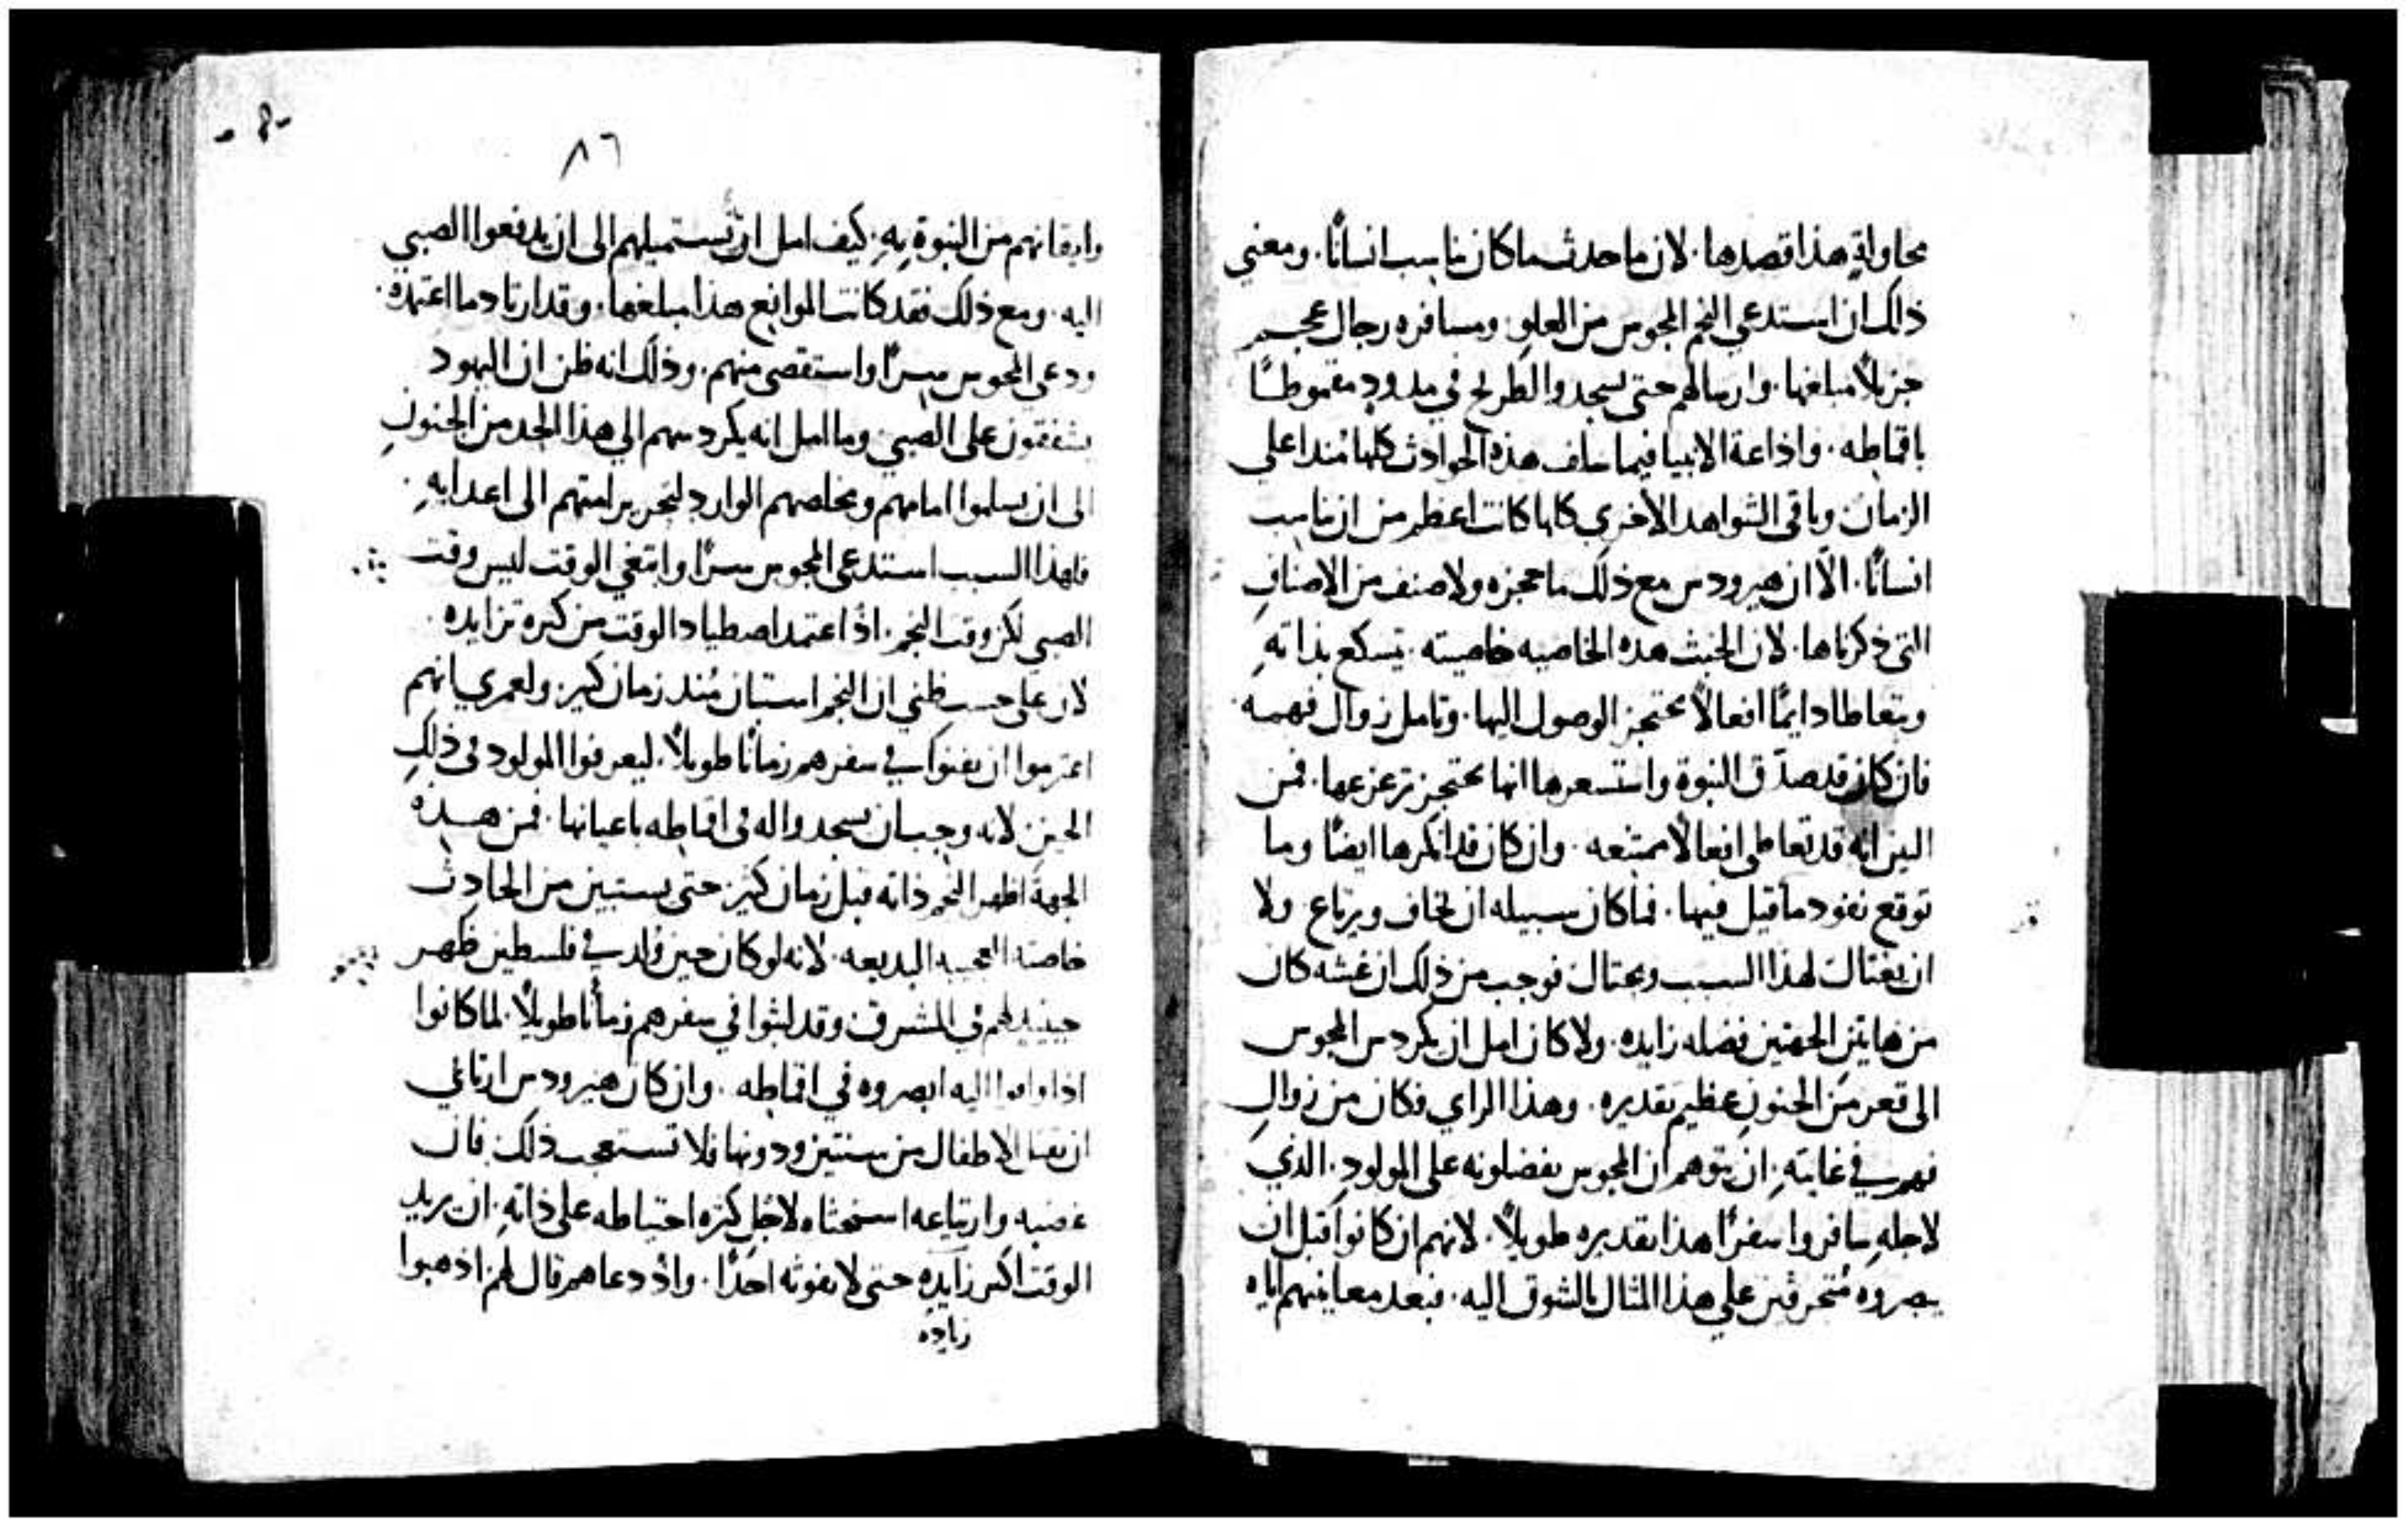 محاولةٍ هذا قصدها. لان ما حدث ما كان يناسب انسانًا. ومعني
ذلك ان استدعي النجم المجوس من العلوِ. ومسافره رجال عجم
جزيلاً مبلغها. وارسالهم حتى يسجدوا لطريح في مدودٍ مقموطًا
باقماطه. واذاعة الانبيا فيما سلف هذه الحوادث كلها مُندا على
الزمان وباقي الشواهد الاخري كلها كانت اعظم من ان يناسب
انسانًا. الّا ان هيرودس مع ذلك ما حجزه ولا صنف من الاصنافِ
التي ذكرناها. لان الخبث هده الخاصيه خاصيته. يتسكع بذاتهِ
ويتعاطا دايمًا افعالاً محتجز الوصول اليها. وتامل زوال فهمه.
فان كان قد صدّق النبوة واستسعرها انها محتجز تزعزعها. فمن
البين انه قد تعاطي افعالاً ممتنعه. وان كان قد انكرها ايضًا وما
توقع نفود ما قيل فيها. فما كان سبيله ان يخاف ويرتاع ولا
ان يغتال لهذا السبب ويحتال فوجب من ذلك ان غشه كان
من هايتين الجهتين فضله زايده. ولا كان امل ان يكردس المجوس
الى قعر من الجنونِ عظيم تقديره. وهذا الراي فكان من زوالِ
فهمه في غايتهِ. ان يتوهم ان المجوس يفضلونه على المولودِ. الذي
لاجلهِ سافروا سفرًا هذا تقديره طويلاً. لانهم ان كانوا قبل ان
يبصروه مُتحرقين علي هذا المثال بالشوق اليه. فبعد معاينتهم اياه
٨٦
وايقانهم من النبوة بهِ. كيف امل ان يستميلهم الى ان يدفعوا الصبي
اليه. ومع ذلك فقد كانت الموانع هذا مبلغها. وقد ارتاد ما اعتمده.
ودعي المجوس سرًا واستقصي منهم. وذلك انه ظن ان اليهود
يشفقون على الصبي وما امل انه يكردسهم الي هذا الحد من الجنونِ
الى ان يسلموا امامهم ومخلصهم الوارد لتحرير امتهم الى اعدايهِ.
فلهذا السبب استدعي المجوس سرًا وابتغي الوقت ليس وقت
الصبي لكن وقت النجم. اذ اعتمد اصطياد الوقت من كثرة تزايده.
لان على حسب ظني ان النجم استبان مُند زمان كثير. ولعمري انهم
اعتزموا ان يفنوا في سفرهم زمانًا طويلاً. ليعرفوا المولود في ذلكِ
الحين. لانه وجب ان يسجدوا له في اقماطه باعيانها. فمن هذه
الجهة اظهر النجم ذاته قبل زمان كثير. حتى يستبين من الحادث
خاصته العجيبه البديعه. لانه لو كان حين وُلد في فلسطين ظهر
حينيد لهم في المشرق وقد لبثوا في سفرهم زمانًا طويلاً. لما كانوا
اذا وافوا اليه ابصروه في اقماطه. وان كان هيرودس ارتاي
ان يقتل الاطفال من سنتين ودونها فلا تستعجب ذلك. فان
غضبه وارتياعه استحثاه لاجل كثره احتياطه على ذاتهِ. ان يريد
الوقت اكثر زايده حتى لا يفوته احدًا. واذ دعاهم قال لهم اذهبوا
زياده